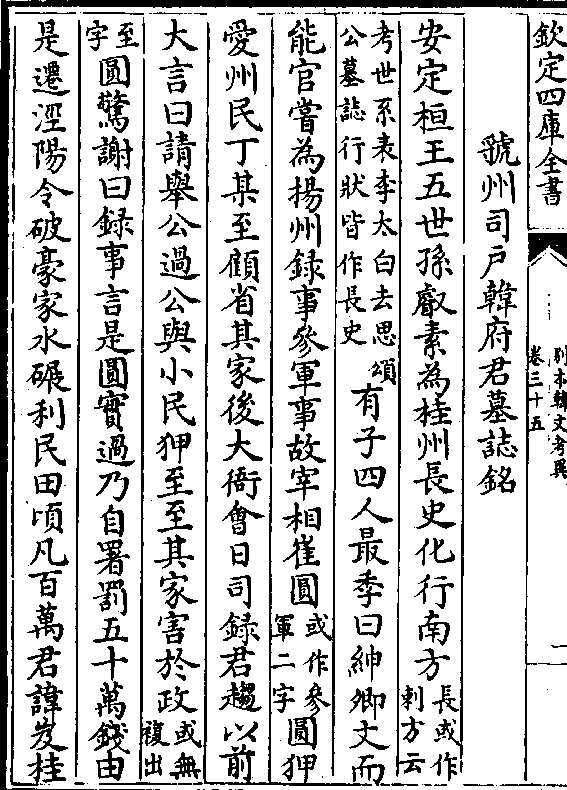 欽定四庫全書
別本韓文考異
卷三十五
一
虢州司戸韓府君墓誌銘
安定桓王五世孫叡素為桂州長史化行南方
長或作
刺方云
考世系表李太白去思頌
公墓誌行狀皆作長史
有子四人最季曰紳卿文而
能官嘗為揚州錄事參軍事故宰相崔圓
或作參
軍二字
圓狎
愛州民丁某至顧省其家後大衙會日司錄君趨以前
大言曰請舉公過公與小民狎至至其家害於政
或無
複出
至
字
圓驚謝曰錄事言是圓實過乃自署罰五十萬錢由
是遷涇陽令破豪家水碾利民田頃凡百萬君諱岌桂